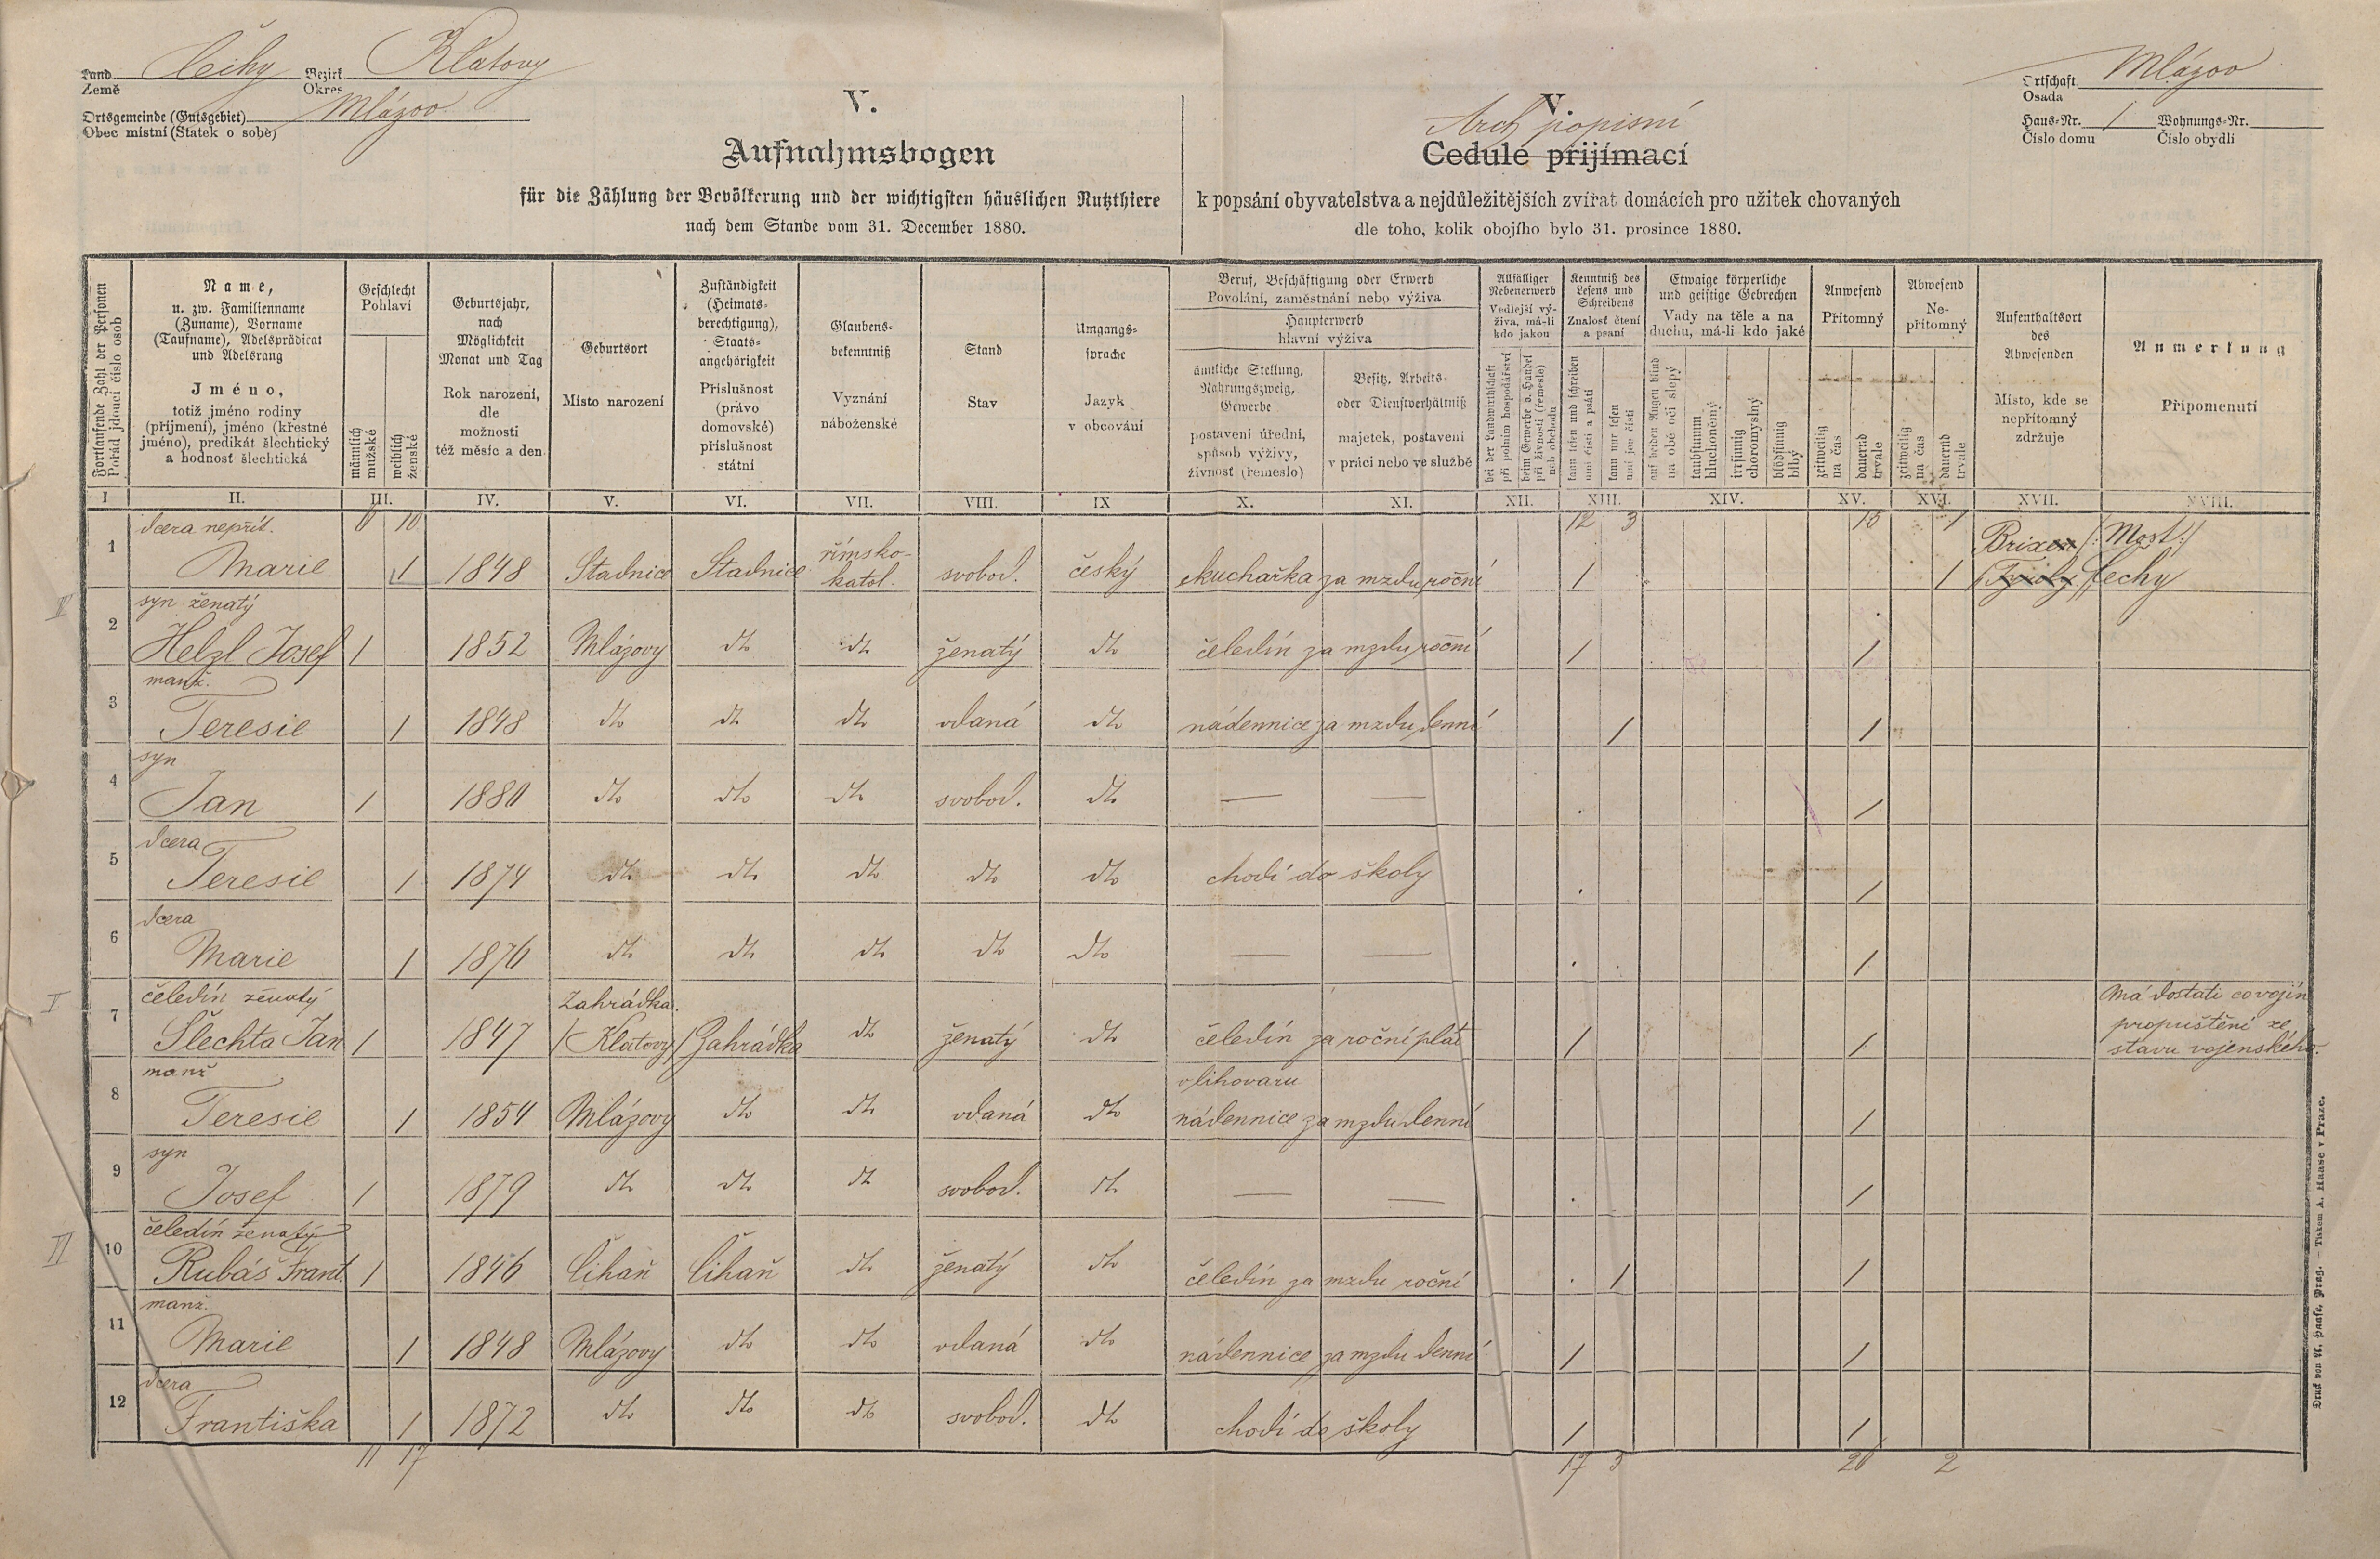 Land Čechy Bezirk Klatovy
Země Okres
Ortsgemeinde (Gutsgebiet) Mlázov
Obec místní (Statek o sobě)
V.
Aufnahmsbogen
für die Zählung der Bevölkerung und der wichtigsten häuslichen Nutzthiere
nach dem Stande vom 31. December 1880.
V.
Arch popisní
Cedule přijímací
k popsání obyvatelstva a nejdůležitějších zvířat domácích pro užitek chovaných
dle toho, kolik obojího bylo 31. prosince 1880.
Ortschaft Mlázov
Osada
Haus-Nr. 1 Wohnungs-Nr.
Číslo domu Číslo obydlí
Fortlaufende Zahl der Personen
Pořád jdoucí číslo osob
Name,
u. zw. Familienname
(Zuname), Vorname
(Taufname), Adelsprädicat
und Adelsrang
Jméno,
totiž jméno rodiny
(příjmení), jméno (křestné
jméno), predikát šlechtický
a hodnost šlechtická
Geschlecht
Pohlaví
männlich
mužské
weiblich
ženské
Geburtsjahr,
nach
Möglichkeit
Monat und Tag
Rok narození,
dle
možnosti
též měsíc a den
Geburtsort
Místo narození
Zuständigkeit
(Heimats-
berechtigung),
Staats-
angehörigkeit
Příslušnost
(právo
domovské)
příslušnost
státní
Glaubens-
bekenntniß
Vyznání
náboženské
Stand
Stav
Umgangs-
sprache
Jazyk
v obcování
Beruf, Beschäftigung oder Erwerb
Povolání, zaměstnání nebo výživa
Haupterwerb
hlavní výživa
ämtliche Stellung,
Nahrungszweig,
Gewerbe
postavení úřední,
způsob výživy,
živnost (řemeslo)
Besitz, Arbeits-
oder Dienstverhältniß
majetek, postavení
v práci nebo ve službě
Allfälliger
Nebenerwerb
Vedlejší vý-
živa, má-li
kdo jakou
bei der Landwirthschaft
při polním hospodářství
beim Gewerbe o. Handel
při živnosti (řemeslo)
neb obchodu
Kenntniß des
Lesens und
Schreibens
Znalost čtení
a psaní
kann lesen und schreiben
umí čísti a psáti
kann nur lesen
umí jen čísti
Etwaige körperliche
und geistige Gebrechen
Vady na těle a na
duchu, má-li kdo jaké
auf beiden Augen blind
na obě oči slepý
taubstumm
hluchoněmý
irrsinnig
choromyslný
blödsinnig
blbý
Anwesend
Přítomný
zeitweilig
na čas
dauernd
trvale
Abwesend
Ne-
přítomný
zeitweilig
na čas
dauernd
trvale
Aufenthaltsort
des
Abwesenden
Místo, kde se
nepřítomný
zdržuje
Anmerkung
Připomenutí
I II. III. IV. V. VI. VII. VIII. IX X. XI. XII. XIII. XIV. XV. XVI. XVII. XVIII.
6 10 12 3 15 1
dcera nepřít.
1 Marie 1 1848 Stadnice Stadnice římsko-katol. svobod. český kuchařka za mzdu roční 1 1 Brixen /: Most :/
Tyroly Čechy
syn ženatý
2 Helzl Josef 1 1852 Mlázovy dto dto ženatý dto čeledín za mzdu roční 1 1
manž.
3 Teresie 1 1848 dto dto dto vdaná dto nádennice za mzdu denní 1 1
syn
4 Jan 1 1880 dto dto dto svobod. dto — — 1
dcera
5 Teresie 1 1874 dto dto dto dto dto chodí do školy 1
dcera
6 Marie 1 1876 dto dto dto dto dto — — 1
čeledín ženatý Zahrádka Má dostati co vojín
7 Šlechta Jan 1 1847 /Klatovy/ Zahrádka dto ženatý dto čeledín za roční plat 1 1 propuštění ze
stavu vojenského.
manž v lihovaru
8 Teresie 1 1854 Mlázovy dto dto vdaná dto nádennice za mzdu denní 1
syn
9 Josef 1 1879 dto dto dto svobod. dto — — 1
čeledín ženatý
10 Rubáš Frant. 1 1846 Čihaň Čihaň dto ženatý dto čeledín za mzdu roční 1 1
manž.
11 Marie 1 1848 Mlázovy dto dto vdaná dto nádennice za mzdu denní 1 1
dcera
12 Františka 1 1872 dto dto dto svobod. dto chodí do školy 1 1
11 17 17 3 26 2
Druck von A. Haase, Prag. — Tiskem A. Haase v Praze.